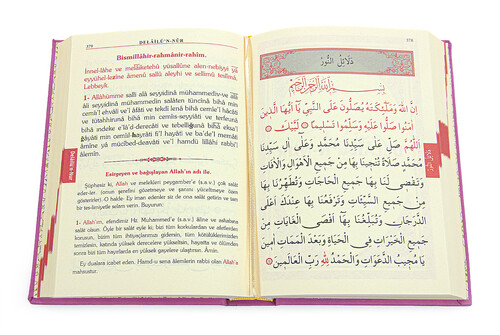 379
DELÂİLÜ'N-NÛR
Bismillâhir-rahmânir-rahîm.
İnnel-lâhe ve melâiketehû yüsallûne alen-nebiyyi yâ
eyyühel-lezîne âmenû sallû aleyhi ve sellimû teslîmâ.
Lebbeyk.
1- Allâhümme salli alâ seyyidinâ muhammediv-ve alâ
âli seyyidinâ muhammedin salâten tüncînâ bihâ min
cemî'l ehvâli ve'l âfâti ve takdî lenâ bihâ cemîal hâcâti
ve tütahhirunâ bihâ min cemîis-seyyiâti ve terfeunâ
bihâ indeke a'lâ'd-derecâti ve tebelliğunâ bihâ eksa'l
ğâyâti min cemîi'l hayrâti fi'l hayâti ve ba'de'l memâti
âmîne yâ mücîbed-deavâti ve'l hamdü lillâhi rabbi'l
âlemîn.
Esirgeyen ve bağışlayan Allah'ın adı ile.
Şüphesiz ki, Allah ve melekleri peygamber'e (s.a.v.) çok salât
ederler. (onun şerefini gözetmeye ve şanını yüceltmeye özen
gösterirler). O halde. Ey iman edenler siz de ona salât getirin ve
tam bir teslimiyetle selam verin. Buyurun:
1- Allah'ım, efendimiz Hz. Muhammed'e (s.a.v.) âline ve ashabına
salât olsun. Öyle bir salât eyle ki, bizi tüm korkulardan ve afetlerden
korusun, bizim tüm ihtiyaçlarımızı gidersin, tüm kötülüklerimizden
temizlesin, katında yüksek derecelere yükseltsin, hayatta ve ölümden
sonra bizi tüm hayırlarda en yüksek gayelere ulaştırsın. Amin.
Ey dualara icabet eden. Hamd u sena âlemlerin rabbi olan Allah'a
mahsustur.
Delâilü'n-Nur
379
دَلَائِلُ النُّورِ
بِسْمِ اللّٰهِ الرَّحْمٰنِ الرَّحِيمِ
اِنَّ اللّٰهَ وَمَلٰئِكَتَهُ يُصَلُّونَ عَلَى النَّبِيِّ يَا اَيُّهَا الَّذِينَ
اٰمَنُوا صَلُّوا عَلَيْهِ وَسَلِّمُوا تَسْلِيمًا لَبَّيْكَ
اَللّٰهُمَّ صَلِّ عَلٰى سَيِّدِنَا مُحَمَّدٍ وَعَلٰى اٰلِ سَيِّدِنَا
مُحَمَّدٍ صَلَاةً تُنْجِينَا بِهَا مِنْ جَمِيعِ الْاَهْوَالِ وَالْاٰفَاتِ
وَتَقْضِي لَنَا بِهَا جَمِيعَ الْحَاجَاتِ وَتُطَهِّرُنَا بِهَا
مِنْ جَمِيعِ السَّيِّئَاتِ وَتَرْفَعُنَا بِهَا عِنْدَكَ اَعْلَى
الدَّرَجَاتِ وَتُبَلِّغُنَا بِهَا اَقْصَى الْغَايَاتِ مِنْ
جَمِيعِ الْخَيْرَاتِ فِي الْحَيَاةِ وَبَعْدَ الْمَمَاتِ اٰمِينَ
يَا مُجِيبَ الدَّعَوَاتِ وَالْحَمْدُ لِلّٰهِ رَبِّ الْعَالَمِينَ